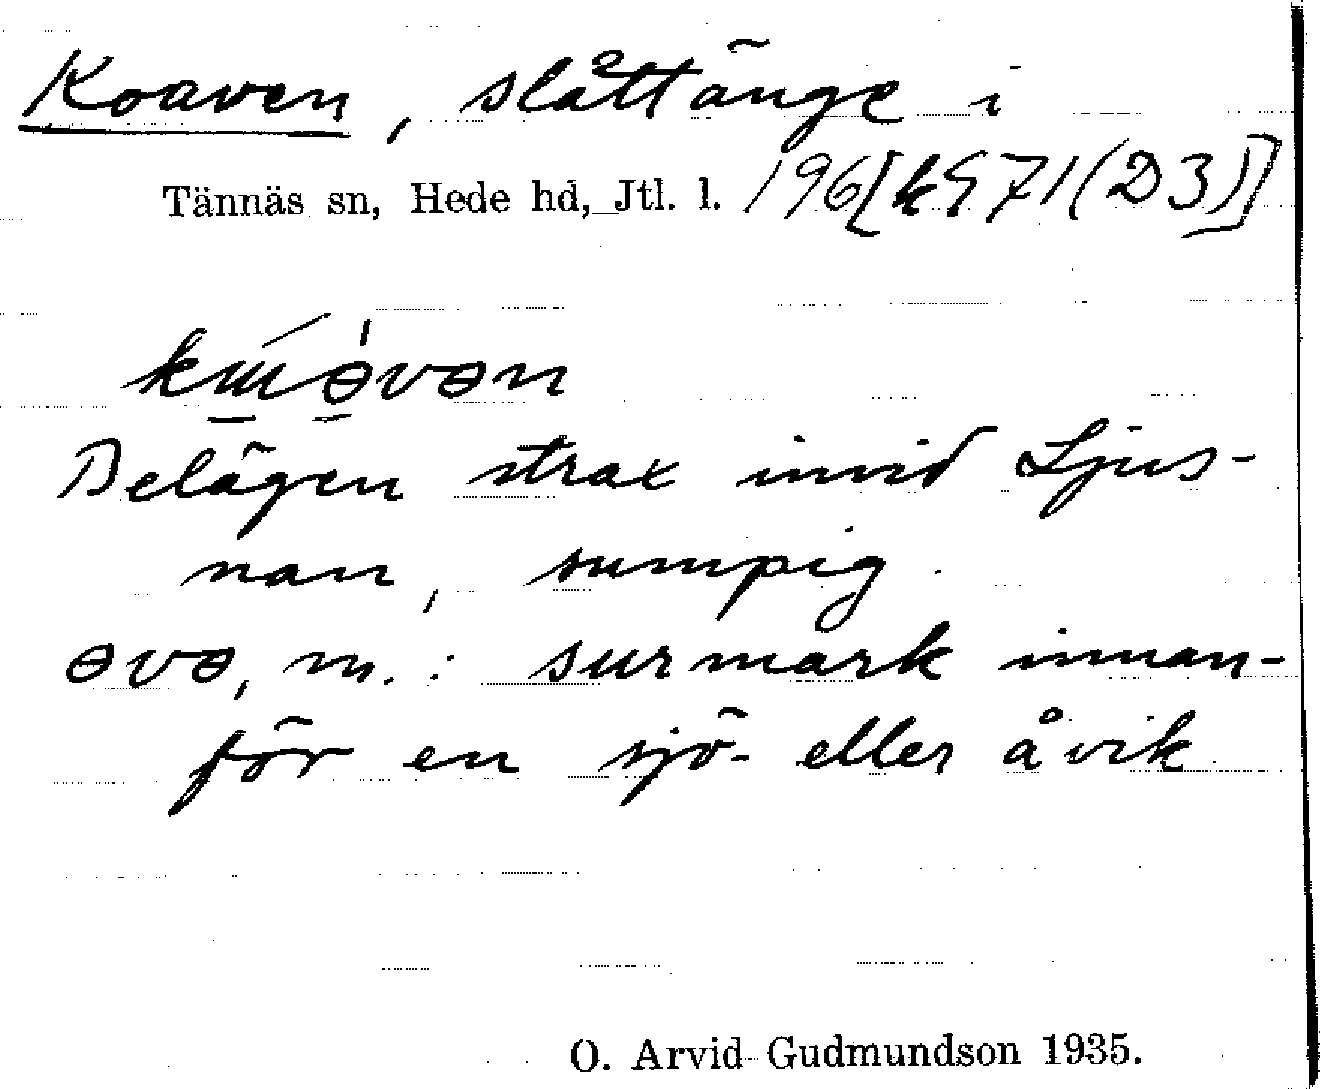 Koaven, slåttänge i
Tännäs sn, Hede hd, Jtl. l. 196[k971(D3)]
Belägen strax invid Ljus-
nan, sumpig.
ɵvɵ, m.: surmark innan-
för en sjö- eller åvik
O. Arvid Gudmundson 1935.